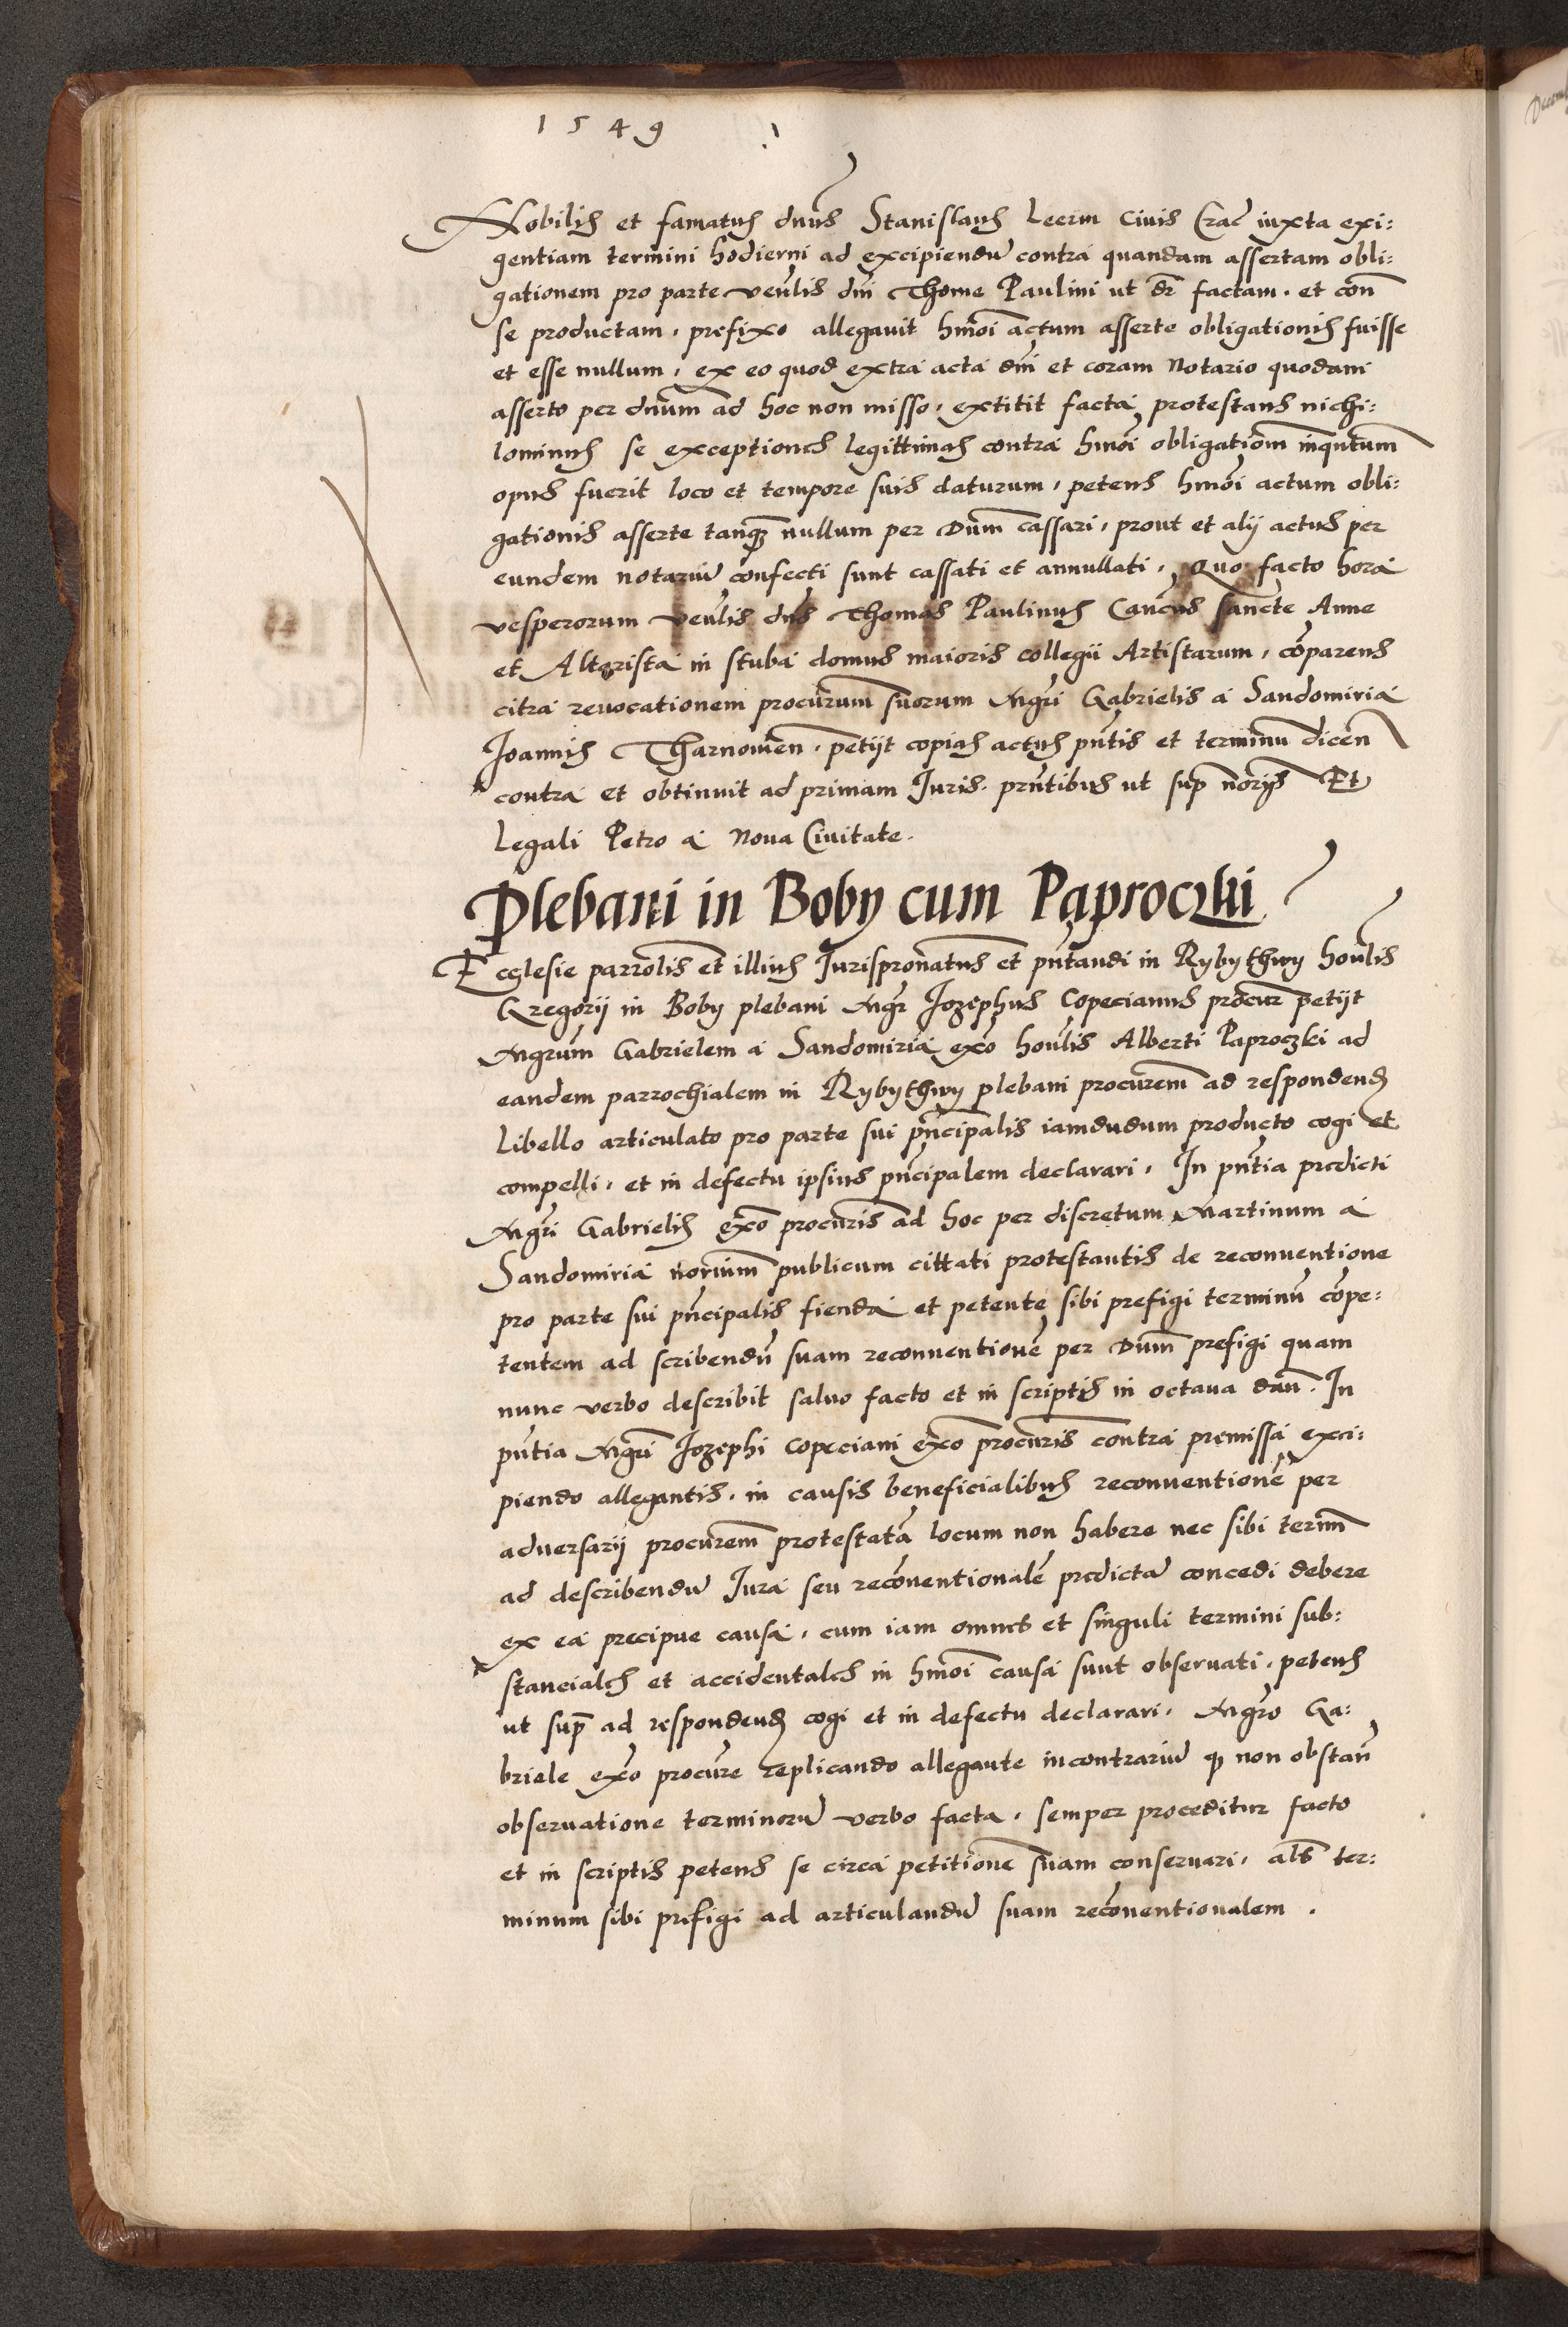 1549
Nobilis et famatus dnus Stanislaus Leerm Ciuis Crac iuxta exi:
gentiam termini hodierni ad excipiendu contra quandam assertam obli:
gationem pro parte venlis dni Thome Paulini ut dr factam. et con
se productam, prefixo allegauit hmoi actum asserte obligationis fuisse
et esse nullum, ex eo quod extra acta dni et coram Notario quodam
asserto per dnum ad hoc non misso, extitit facta, protestans nichi:
lominus se exceptiones legittimas contra hmoi obligatiom inqntum
opus fuerit loco et tempore suis daturum, petens hmoi actum obli:
gationis asserte tanq nullum per Dum cassari, prout et alij actus per
eundem notariu confecti sunt cassati et annullati, Quo facto hora
vesperorum venlis dns Thomas Paulinus Cancus sancte Anne
et Altarista in stuba domus maioris collegii Artistarum, coparens
citra reuocationem procurum suorum Mgri Gabrielis a Sandomiria
Joannis Tharnowien, petijt copias actus pntis et terminu dicen
contra et obtinuit ad primam Juris. prntibus ut sup noriis Et
Legali Petro a Noua Ciuitate.
Plebani in Boby cum Paproczki
Ecclesie parrolis et illius Jurispronatus et pntandi in Rybythwy honlis
Gregorij in Boby plebani Mgr Jozephus Copecianus procur petijt
Mgrum Gabrielem a Sandomiria exo honlis Alberti Paproczki ad
eandem parrochialem in Rybythwy plebani procurem ad respondend
Libello articulato pro parte sui pncipalis iamdudum producto cogi et
compelli, et in defectu ipsius pncipalem declarari, In pntia predicti
Mgri Gabrielis exo procuris ad hoc per discretum Martinum a
Sandomiria norium publicum cittati protestantis de reconuentione
pro parte sui pncipalis fienda et petente sibi prefigi terminu cope:
tentem ad scribendu suam reconuentione per Dum prefigi quam
nunc verbo describit saluo facto et in scriptis in octaua dan. In
pntia Mgri Jozephi Copeciani exo procuris contra premissa exci:
piendo allegantis, in causis beneficialibus reconuentione per
aduersarij procurem protestata locum non habere nec sibi termm
ad describendu Jura seu reconuentionale predicta concedi debere
ex ea precipue causa, cum iam omnes et singuli termini sub:
stanciales et accidentales in hmoi causa sunt obseruati, petens
ut sup ad respondend cogi et in defectu declarari, Mgro Ga:
briele exo procure replicando allegante incontrariu q non obstan
obseruatione terminoru verbo facta, semper proceditur facto
et in scriptis petens se circa petitione suam conseruari, als ter:
minum sibi prefigi ad articulandu suam reconuentionalem.